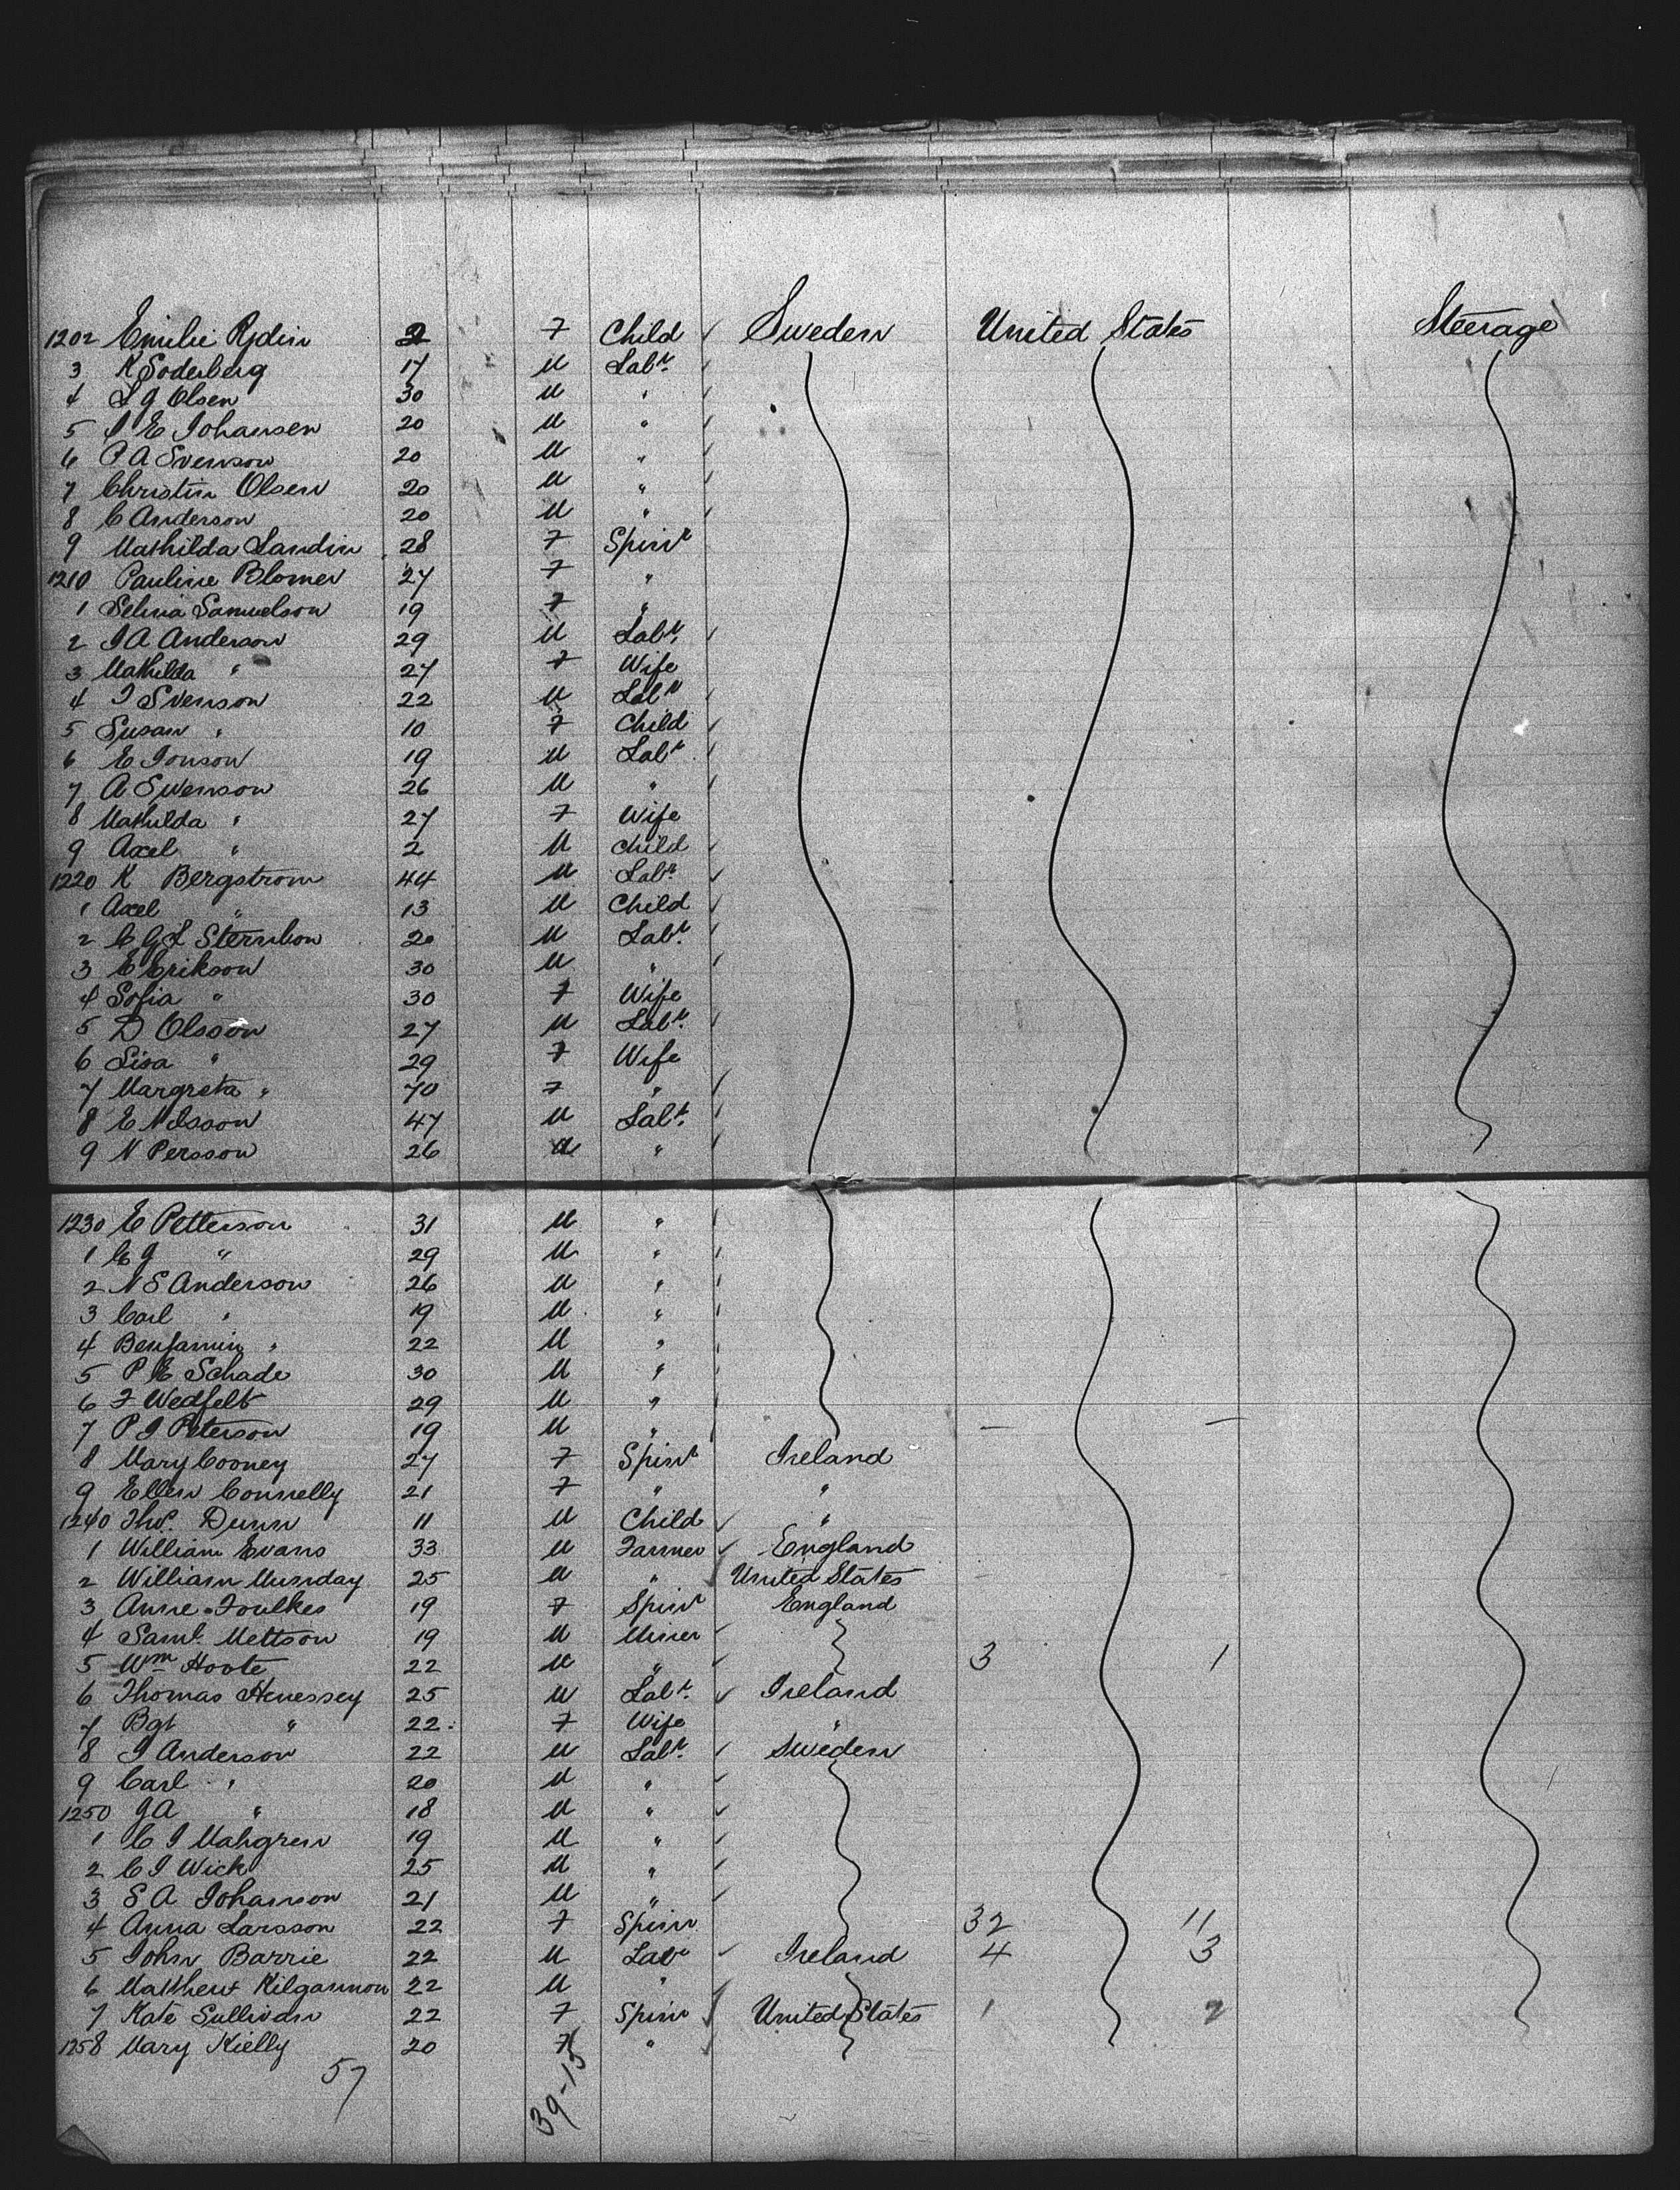 1202 Emilie Rydin 2 F Child ✓ Sweden United States Steerage
3 K Soderberg 17 M Labr. /
4 L G Olsen 30 M " /
5 I E Johansen 20 M " /
6 P A Svenson 20 M " /
7 Christin Olsen 20 M " /
8 C Anderson 20 M " /
9 Mathilda Landin 28 F Spinr
1210 Pauline Blomer 27 F "
1 Selma Samuelson 19 F "
2 J A Anderson 29 M Labr. /
3 Mathilda " 27 F Wife
4 J Svenson 22 M Labr /
5 Susan " 10 F Child /
6 E Jonson 19 M Labr /
7 A Swenson 26 M " /
8 Mathilda " 27 F Wife
9 Axel " 2 M Child ✓
1220 K Bergstrom 44 M Labr. ✓
1 Axel " 13 M Child ✓
2 C G L Sternbon 20 M Labr. /
3 E Erikson 30 M " /
4 Sofia " 30 F Wife
5 D Olsson 27 M Labr. /
6 Lisa " 29 F Wife
7 Margreta " 70 F " /
8 E Nilsson 47 M Labr. /
9 N Persson 26 M " /
1230 E Petterson 31 M " /
1 C G " 29 M " /
2 N S Anderson 26 M " /
3 Carl " 19 M " /
4 Benjamin " 22 M " /
5 P E Schade 30 M " /
6 F Wedfelt 29 M " /
7 P J Peterson 19 M " / — —
8 Mary Cooney 27 F Spinr Ireland
9 Ellen Connelly 21 F " "
1240 Thos. Dunn 11 M Child ✓ "
1 William Evans 33 M Farmer ✓ England
2 William Munday 25 M " ✓ United States
3 Anne Foulkes 19 F Spinr England
4 Saml. Mettson 19 M Miner ✓
5 Wm Hoote 22 M " ✓ 3 1
6 Thomas Henessey 25 M Labr. ✓ Ireland
7 Bgt " 22 F Wife "
8 J Anderson 22 M Labr. / Sweden
9 Carl " 20 M " ✓
1250 G A " 18 M " ✓
1 C J Maligren 19 M " ✓
2 C J Wick 25 M " ✓
3 S A Johanson 21 M " ✓
4 Anna Larsson 22 F Spinr 32 11
5 John Barrie 22 M Labr ✓ Ireland 4 3
6 Matthew Kilgannon 22 M " ✓
7 Kate Sullivan 22 F Spinr ✓ United States 1 2
1258 Mary Kielly 20 F " ✓
57 39-15